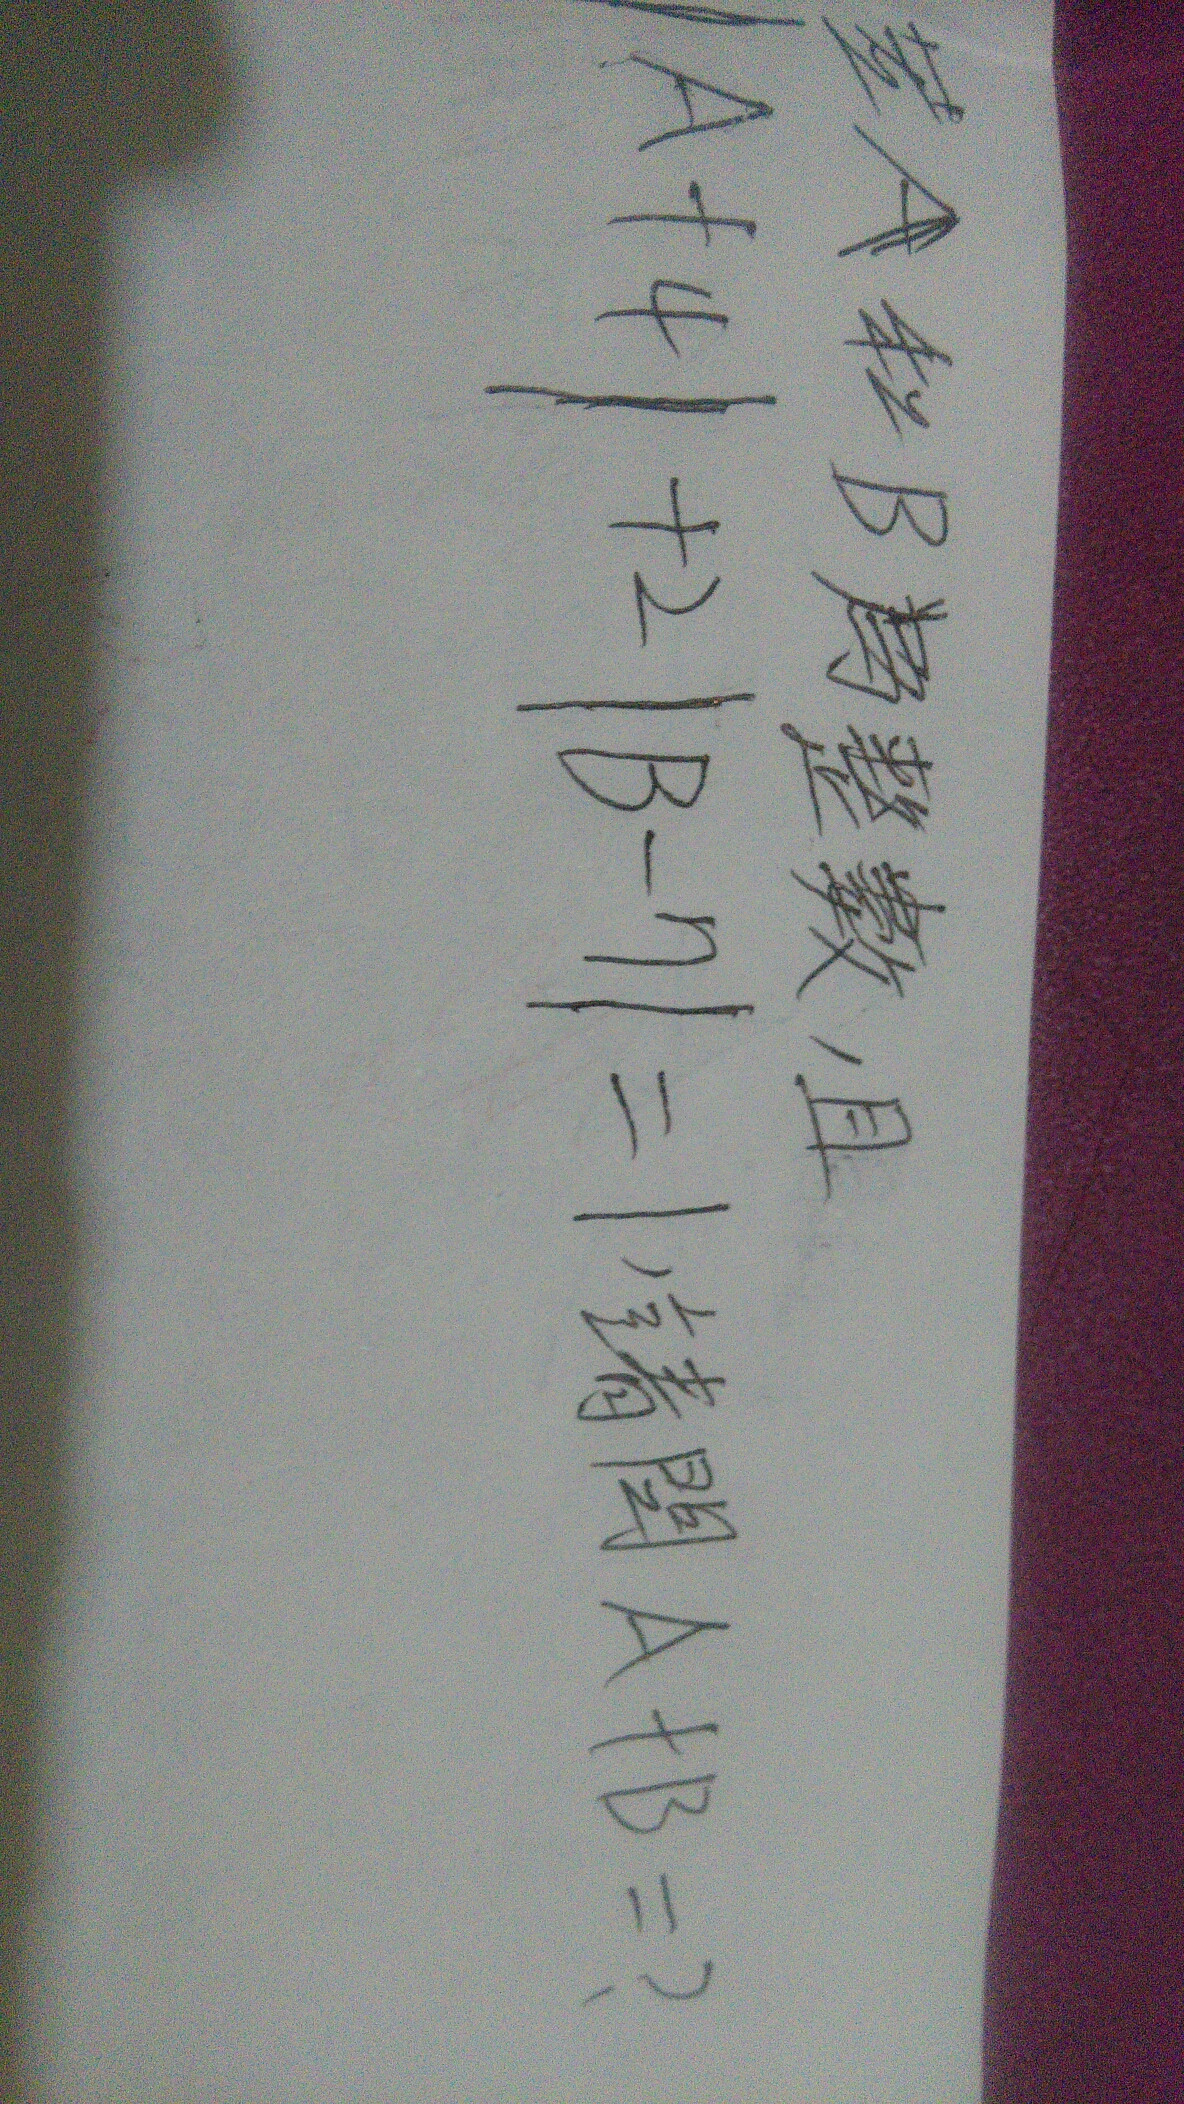 若A和B為整數，且
|A+4|+2|B-7|=1，請問A+B=?